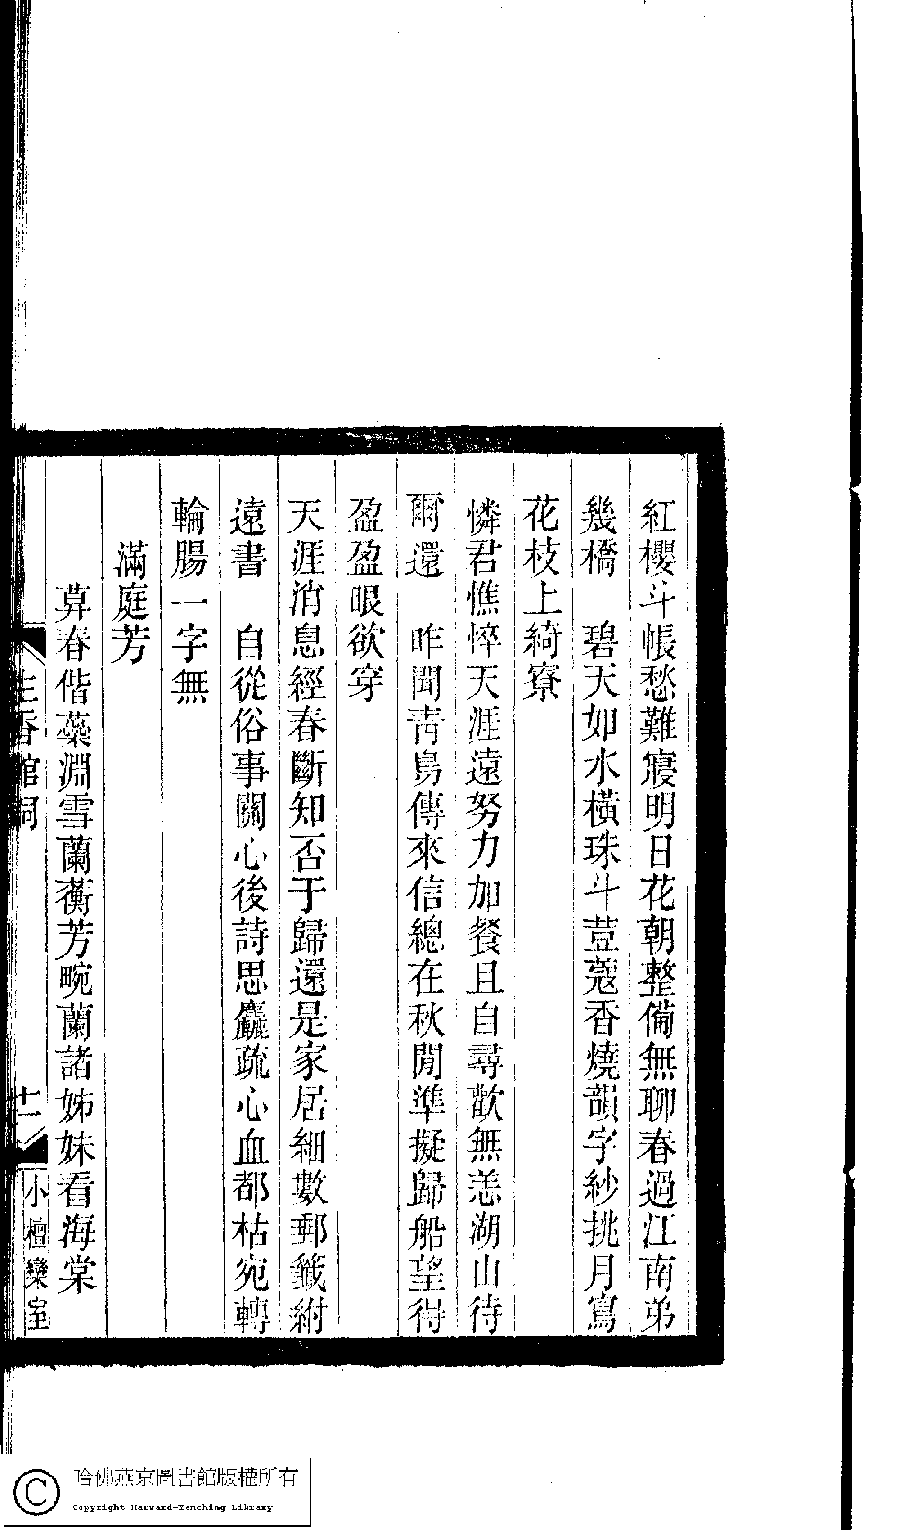 紅櫻斗帳愁難寢明日花朝整備無聊春過江南弟
幾橋　碧天如水橫珠斗荳蔻香燒韻字紗挑月寫
花枝上綺寮
憐君憔悴天涯遠努力加餐且自尋歡無恙湖山待
爾還　昨聞靑鳥傳來信總在秋閒準擬歸船望得
盈盈眼欲穿
天涯消息經春斷知否于歸還是家居細數郵籤紨
遠書　自從俗事關心後詩思麤疏心血都枯宛轉
輪腸一字無
滿庭芳
莽春偕蘂淵雪蘭蘅芳畹蘭諸姊妹看海棠
生香館詞
十二
小檀欒室
哈佛燕京圖書館版權所有
Copyright Harvard-Yenching Library